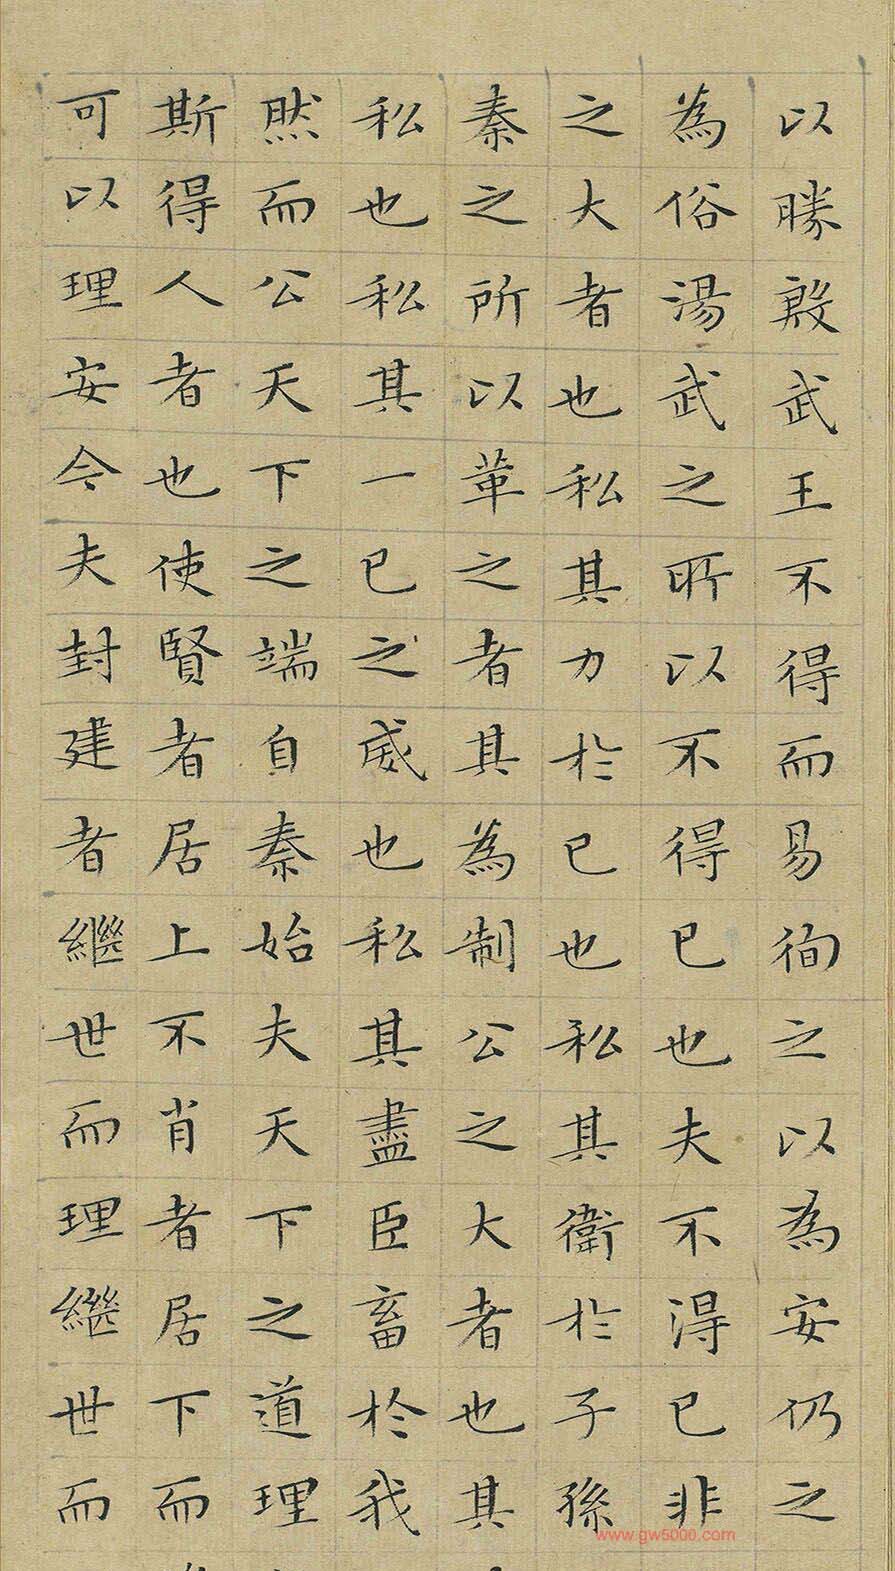 以勝殷武王不得而易徇之以為安仍之
為俗湯武之所以不得已也夫不得已非
之大者也私其力於已也私其衛於子孫
秦之所以革之者其為制公之大者也其
私也私其一已之威也私其盡臣畜於我
然而公天下之端自秦始夫天下之道理
斯得人者也使賢者居上不肖者居下而
可以理安今夫封建者繼世而理繼世而
www.gw5000.com